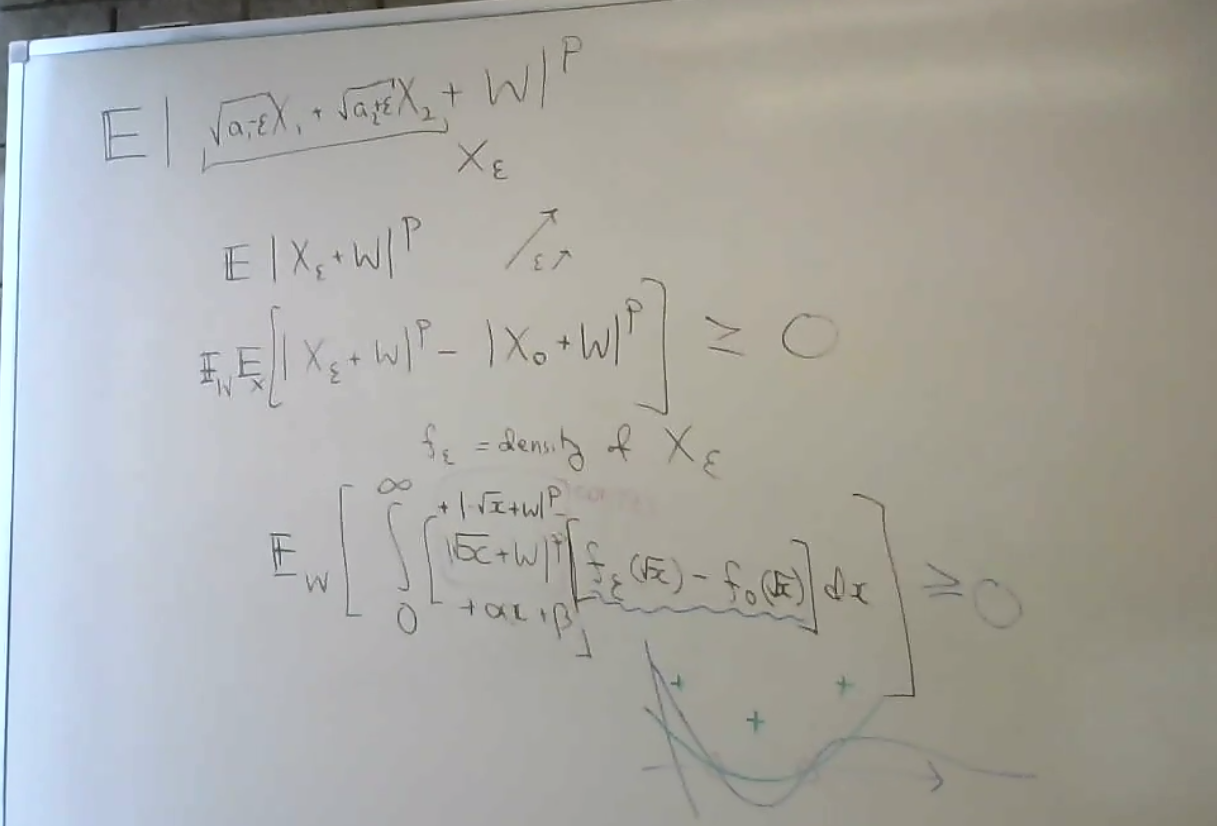 𝔼 | √(a₁-ε) X₁ + √(a₂+ε) X₂ + W|^P
X_ε
𝔼 |X_ε + W|^P ↗ ε↗
𝔼_W 𝔼_X [|X_ε + W|^P - |X₀ + W|^P] ≥ 0
f_ε = density of X_ε
+ |-√x + W|^P
𝔼_W [ ∫₀^∞ [ |√x + W|^P + αx + β ] [ f_ε(√x) - f₀(√x) ] dx ] ≥ 0
+ + +